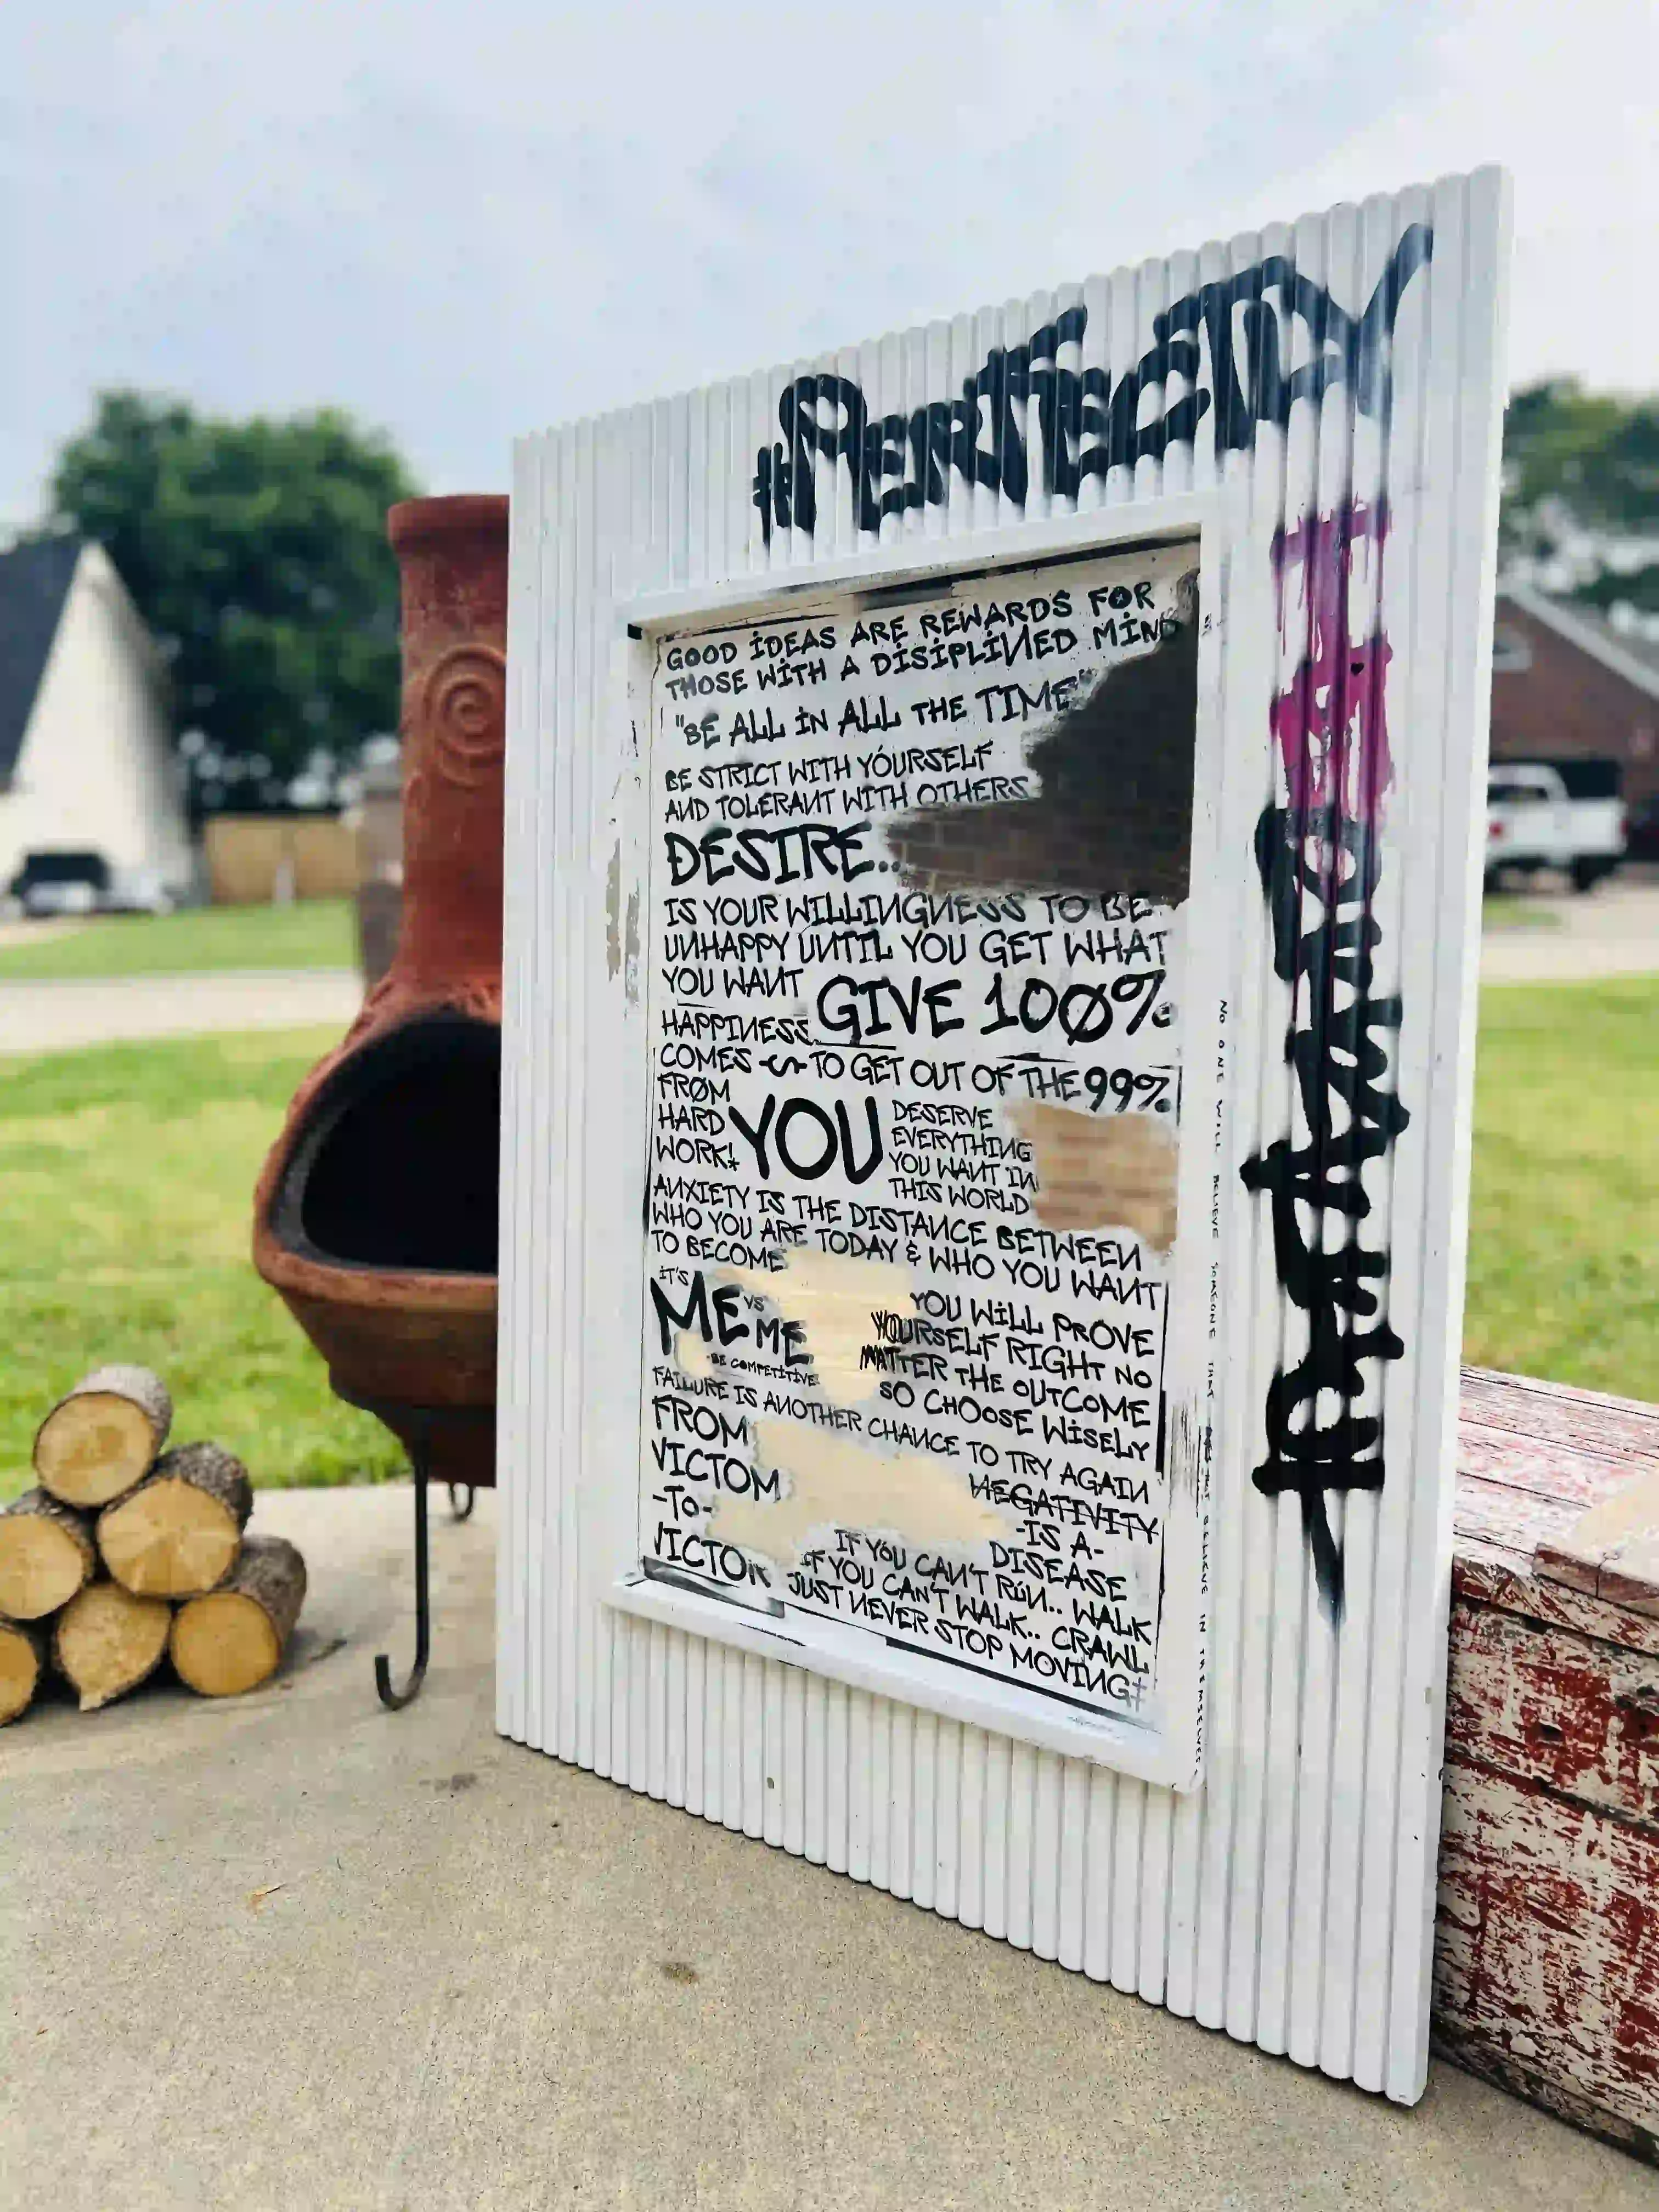 #PERFECTLY
GOOD IDEAS ARE REWARDS FOR
THOSE WITH A DISIPLINED MIND
"BE ALL IN ALL THE TIME"
BE STRICT WITH YOURSELF
AND TOLERANT WITH OTHERS
DESIRE...
IS YOUR WILLINGNESS TO BE
UNHAPPY UNTIL YOU GET WHAT
YOU WANT
GIVE 100%
TO GET OUT OF THE 99%
HAPPINESS
COMES
FROM
HARD
WORK!
YOU
DESERVE
EVERYTHING
YOU WANT IN
THIS WORLD
ANXIETY IS THE DISTANCE BETWEEN
WHO YOU ARE TODAY & WHO YOU WANT
TO BECOME
IT'S
ME VS
ME
BE COMPETITIVE
YOU WILL PROVE
YOURSELF RIGHT NO
MATTER THE OUTCOME
SO CHOOSE WISELY
FAILURE IS ANOTHER CHANCE TO TRY AGAIN
FROM
VICTOM
-TO-
VICTOR
NEGATIVITY
-IS A-
DISEASE
IF YOU CAN'T RUN.. WALK
IF YOU CAN'T WALK.. CRAWL
JUST NEVER STOP MOVING!
NO ONE WILL BELIEVE SOMEONE THAT DOES NOT BELIEVE IN THEMSELVES